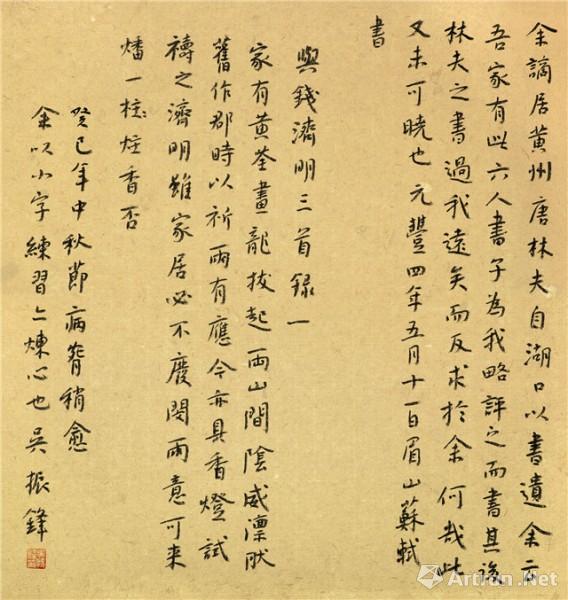 余謫居黃州唐林夫自湖口以書遺余云
吾家有此六人書子為我略評之而書其後
林夫之書過我遠矣而反求於余何哉此
又未可曉也元豐四年五月十一日眉山蘇軾
書
與錢濟明三首録一
家有黃荃畫龍拔起兩山間陰威凛然
舊作郡時以祈雨有應今亦具香燈試
禱之濟明雖家居必不廢閔雨意可來
燔一炷香否
癸巳年中秋節病脊稍愈
余以小字練習亦煉心也吳振鋒
Artron.Net